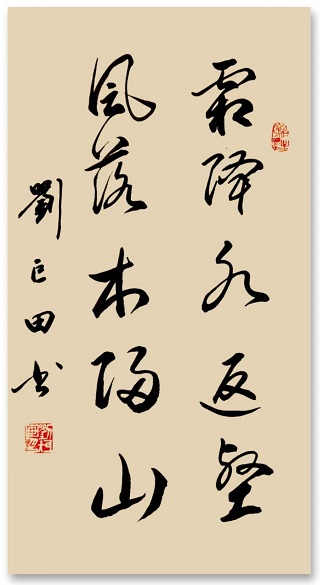 霜降水返壑
風落木歸山
劉巨田书